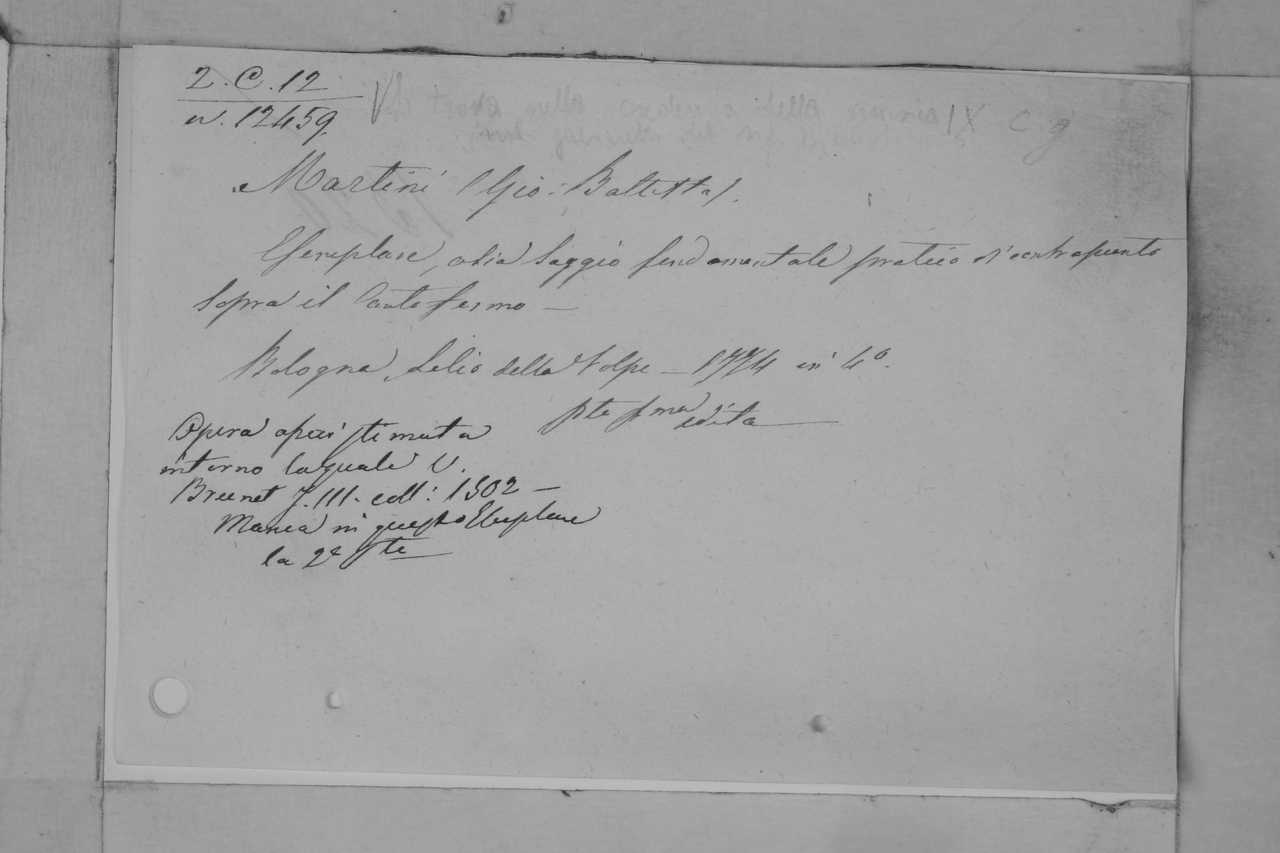 2. C. 12
n. 12459.
IX C. g
Martini (Gio: Battista).
Esemplare, osia Saggio fondamentale pratico di contrapunto
sopra il Canto fermo —
Bologna, Lelio della Volpe — 1774 in 4º.
pte pma edita —
Opera
intorno la quale V.
Brunet T. III. coll: 1502 —
Manca in questo Esemplare
la 2ª pte